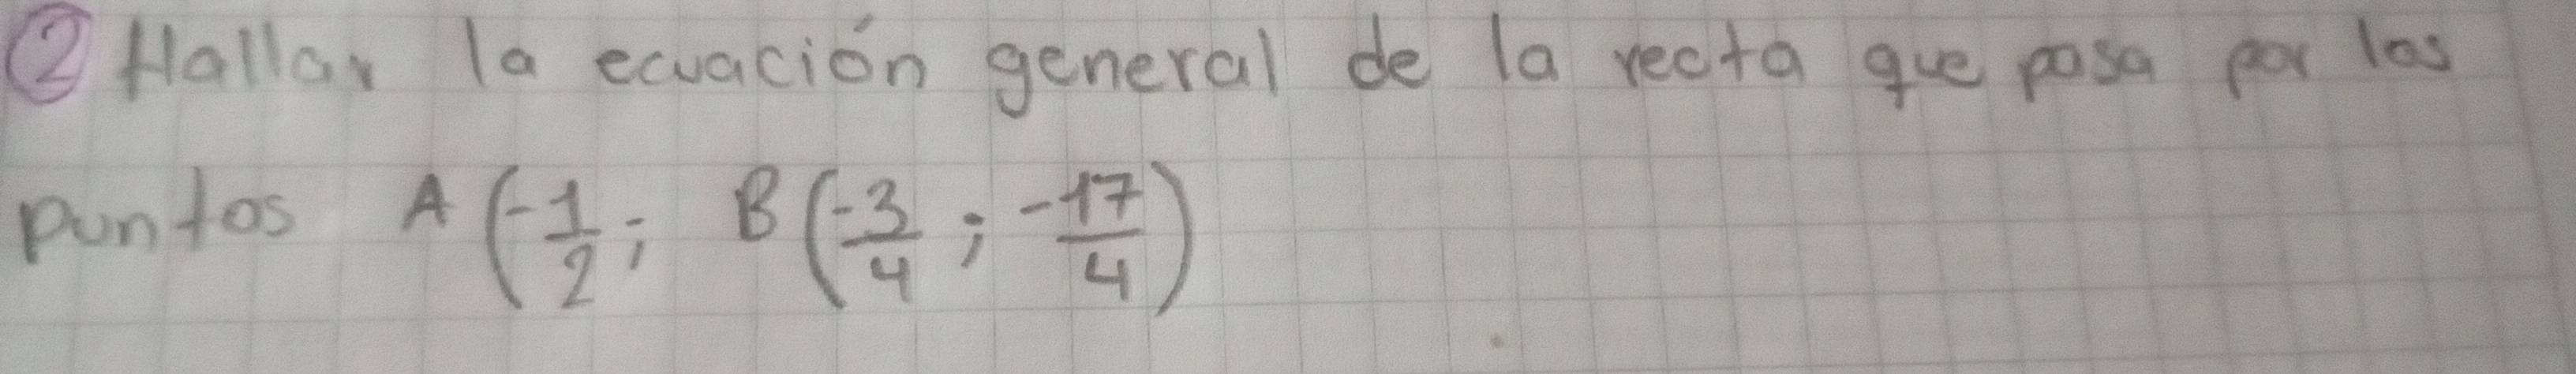 ② Hallar la ecuación general de la recta que pasa por los
puntos A (-1/2 ; B (-3/4 ; -17/4)